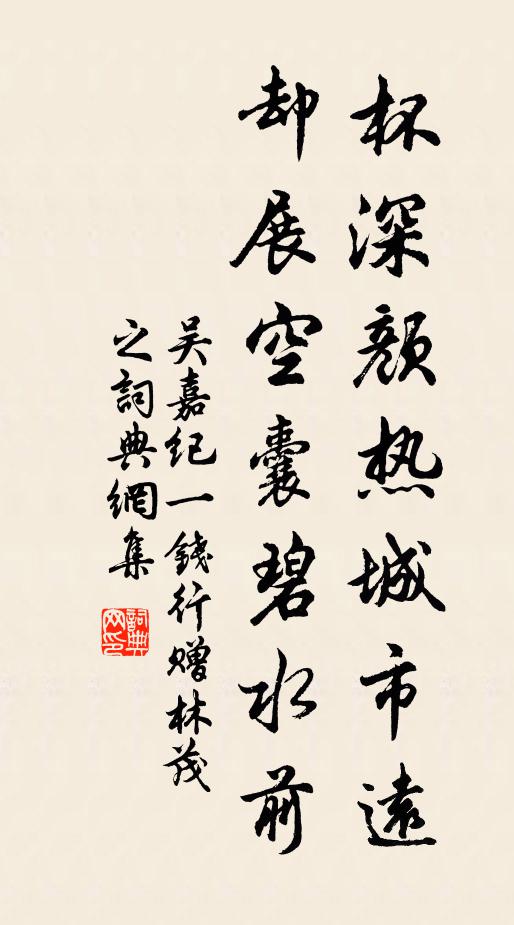 杯深顔热城市遠
却展空囊碧水前
吴嘉纪一錢行赠林茂
之詞典網集
詞典網印